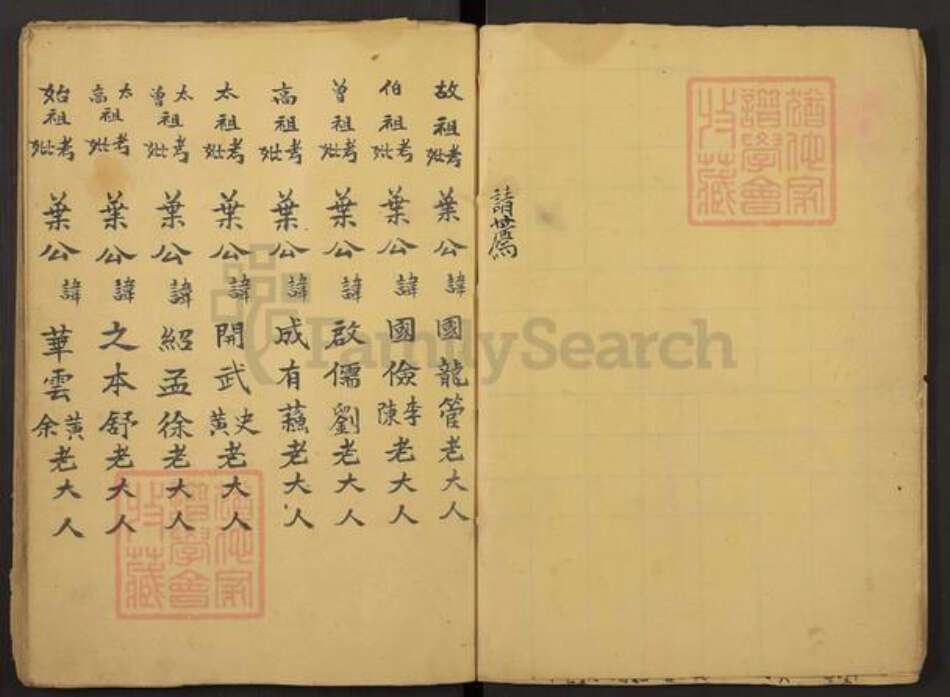 請薦
故祖考妣葉公諱國龍管老大人
伯祖考妣葉公諱國儉李陳老大人
曾祖考妣葉公諱啟儒劉老大人
高祖考妣葉公諱成有蘓老大人
太祖考妣葉公諱開武史黃老大人
太曾祖考妣葉公諱紹孟徐老大人
太高祖考妣葉公諱之本舒老大人
始祖考妣葉公諱華雲黃余老大人
FamilySearch